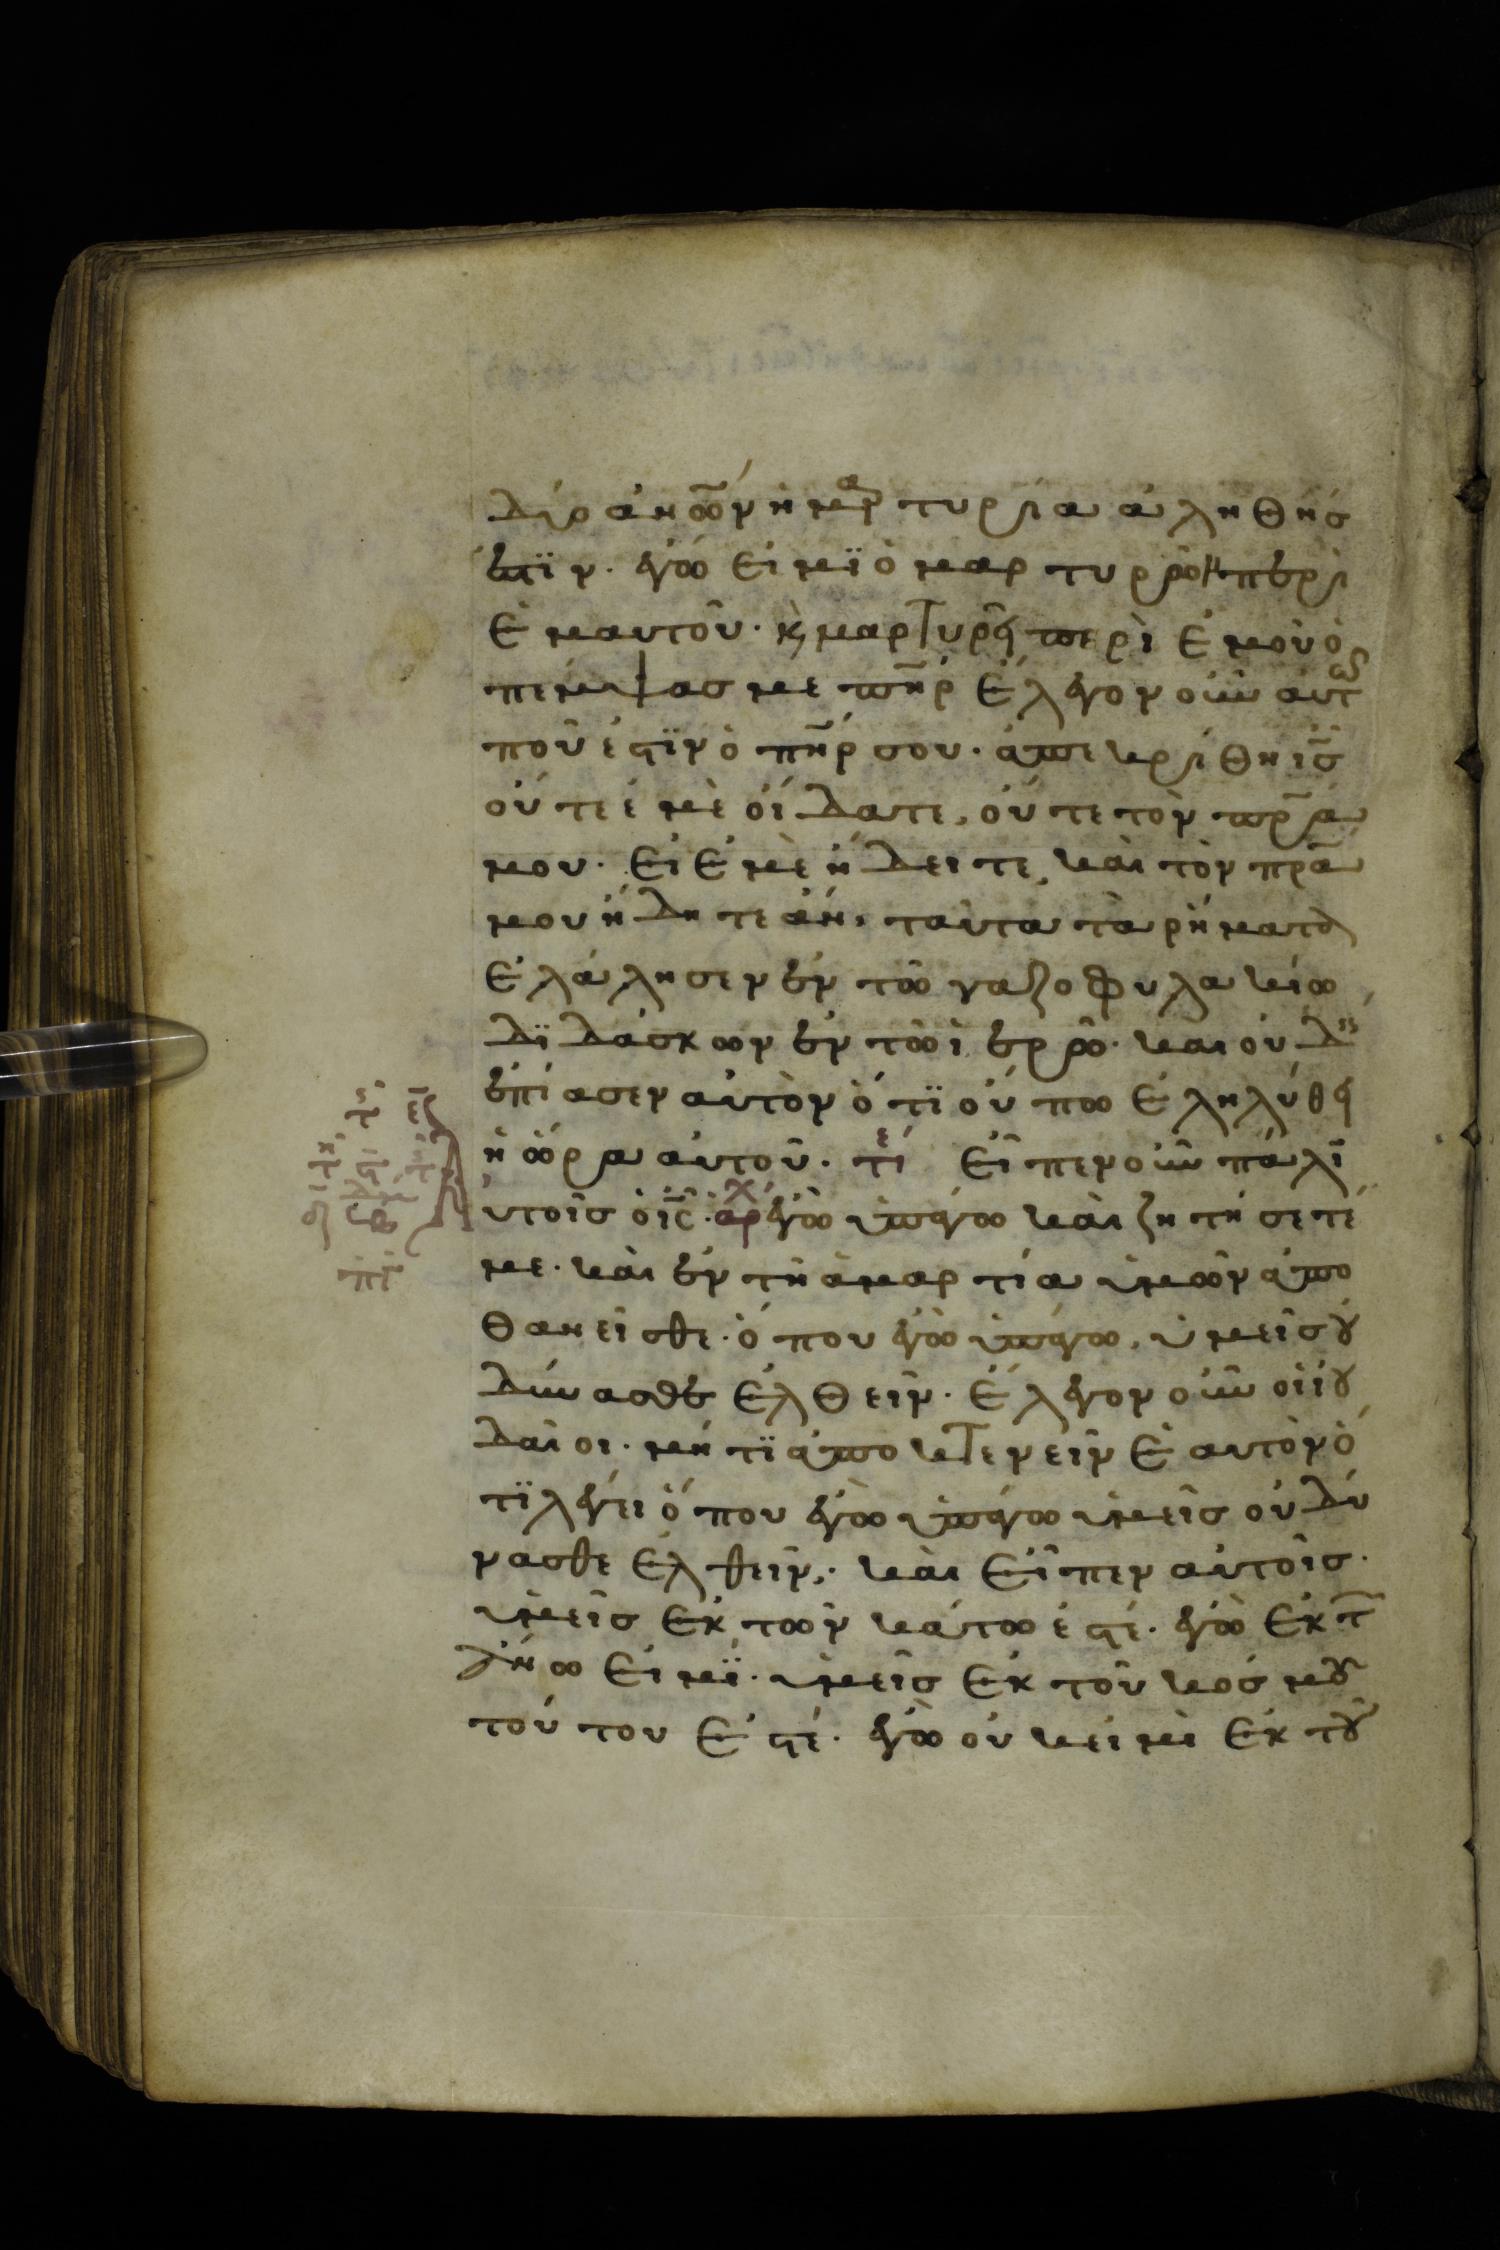 δύο ἀν̅ω̅ν ἡ μαρτυρία ἀληθής
ἐστϊν. ἐγώ εἰμϊ ὁ μαρτυρῶν περὶ
ἐμαυτοῦ. κ̀ μαρτυρεῖ περὶ ἐμοῦ ὁ
πέμψασ με πη̅ρ ἔλεγον οὖν αὐτω
ποῦ ἐστϊν ὁ πη̅ρ σου. ἀπεκρίθη ἰ̅σ
οὔτε ἐμὲ οἴδατε, οὔτε τὸν πρ̅α
μου. εἰ ἐμὲ ἤδειτε, καὶ τὸν πρ̅α
μου ἤδητε ἄν, ταῦτα τὰ ρήματα
ἐλάλησεν ἐν τῶ γαζοφυλακίω
δϊδάσκων ἐν τῶ ἱερῶ. καὶ οὐδεὶς
ἐπίασεν αὐτὸν ὅτϊ οὔπω ἐληλύθει
ἡ ὥρα αὐτοῦ. τέ εἶπεν οὖν πάλι
υτοῖσ ὁ ι̅ς. ἀρχ ἐγὼ ὑπάγω καὶ ζητήσετέ
με. καὶ ἐν τῆ ἁμαρτία ὑμῶν ἀπο
θανεῖσθε. ὅπου ἐγὼ ὑπάγω, ὑμεῖσ ȣ
δύνασθε ἐλθεῖν. ἔλεγον οὖν οἱ ἰȣ
δαῖοι. μήτϊ ἀποκτενεῖν ἑαυτὸν ὅ
τϊ λέγει ὅπου ἐγὼ ὑπάγω ὑμεῖσ οὐ δύ
νασθε ἐλθεῖν,. καὶ εἶπεν αὐτοῖσ.
ὑμεῖσ ἐκ τῶν κάτω ἐστέ. ἐγὼ ἐκ τ
ἄνω εἰμϊ. ὑμεῖσ ἐκ τοῦ κόσμȣ
τούτου ἐστέ. ἐγὼ οὐκ εἰμὶ ἐκ τȣ